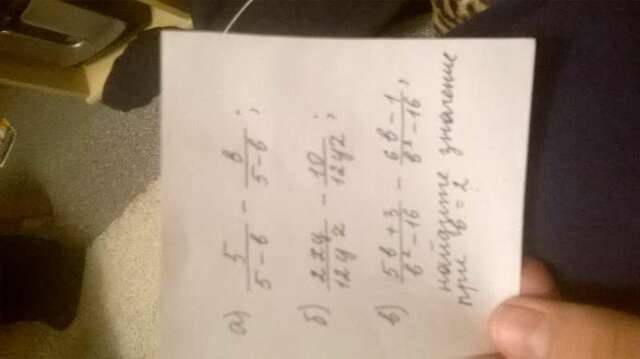 а) 5/(5-в) - в/(5-в);
б) 22у/12у2 - 10/12у2;
в) (5в+3)/(в²-16) - (6в-1)/(в²-16);
найдите значение
при в = 2